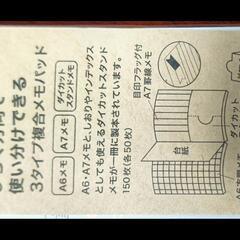 使い分けできる
3タイプ複合メモパッド
A6メモ
A7メモ
ダイカット
スタンドメモ
A6・A7メモと、しおりやインデックス
としても使えるダイカットスタンド
メモが一冊に製本されています。
150枚(各50枚)
目印フラッグ付
A7罫線メモ
台紙